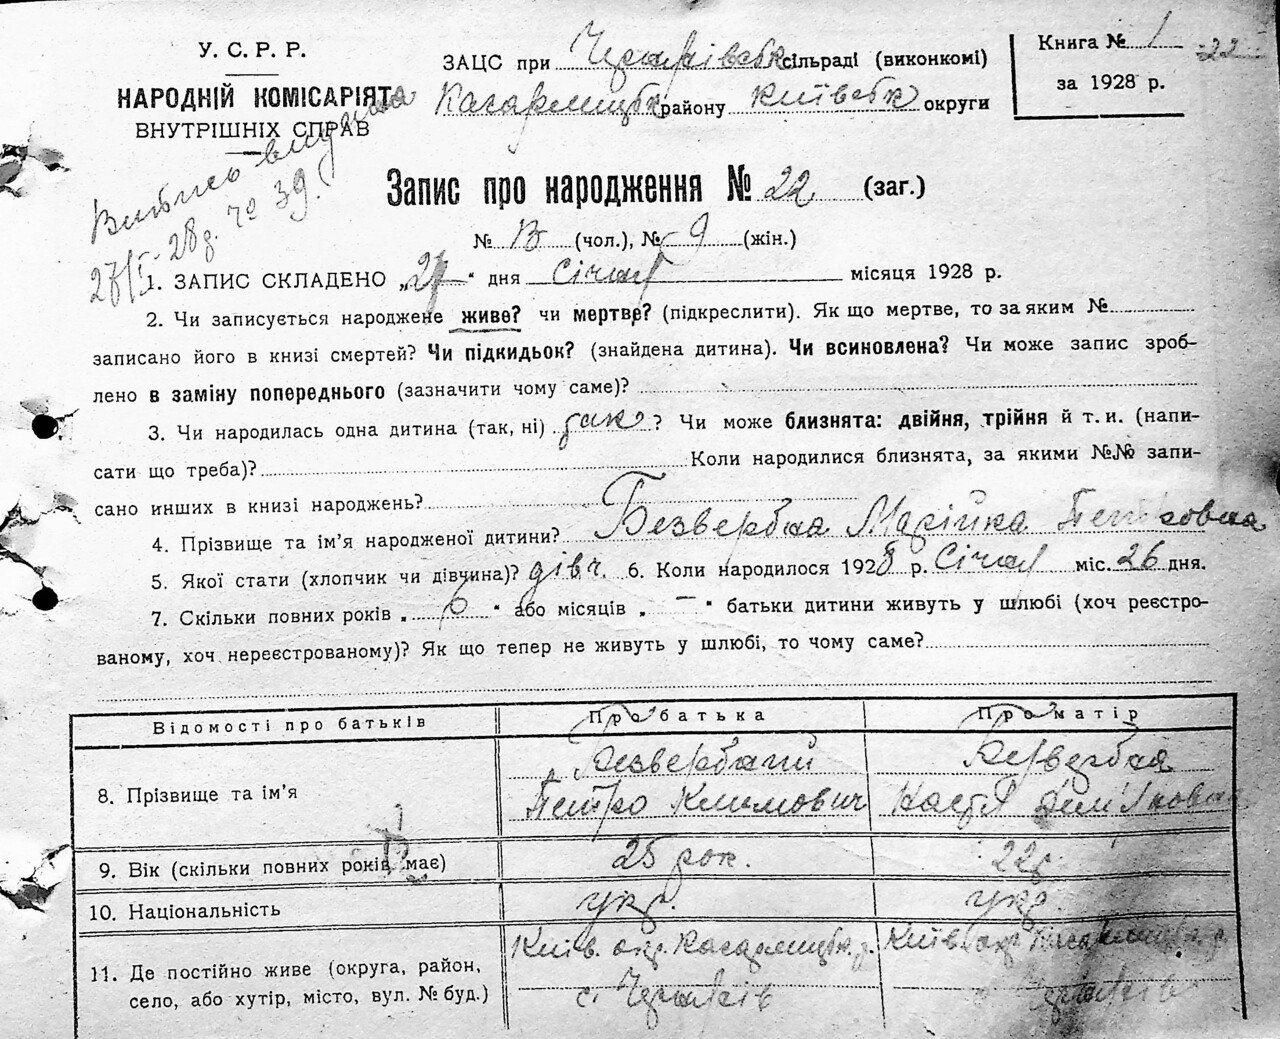 У. С. Р. Р.
НАРОДНІЙ КОМІСАРІЯТ
ВНУТРІШНІХ СПРАВ
ЗАЦС при Черняхівськ сільраді (виконкомі)
Кагарлицьк району Київськ округи
Книга № 1
за 1928 р.
22
Витись видана
27/I-28 р. № 39.
Запис про народження № 22 (заг.)
№ 13 (чол.), № 9 (жін.)
1. ЗАПИС СКЛАДЕНО „27" дня Січня місяця 1928 р.
2. Чи записується народжене живе? чи мертве? (підкреслити). Як що мертве, то за яким №
записано його в книзі смертей? Чи підкидьок? (знайдена дитина). Чи всиновлена? Чи може запис зроб-
лено в заміну попереднього (зазначити чому саме)?
3. Чи народилась одна дитина (так, ні) так? Чи може близнята: двійня, трійня й т. и. (напи-
сати що треба)? Коли народилися близнята, за якими №№ запи-
сано инших в книзі народжень?
4. Прізвище та ім'я народженої дитини? Безверbна Марійка Петровна
5. Якої стати (хлопчик чи дівчина)? дівч. 6. Коли народилося 1928 р. Січня міс. 26 дня.
7. Скільки повних років „6" або місяців „—" батьки дитини живуть у шлюбі (хоч реєстро-
ваному, хоч нереєстрованому)? Як що тепер не живуть у шлюбі, то чому саме?
Відомості про батьків Про батька Про матір
8. Прізвище та ім'я
Безвербний
Петро Климович
Безвербна
Настя Дем'яновна
9. Вік (скільки повних років має) 25 рок. 22 р.
10. Національність укр. укр.
11. Де постійно живе (округа, район,
село, або хутір, місто, вул. № буд.)
Київ. окр. Кагарлицьк. р.
с. Черняхів
Київ. окр. Кагарлицьк. р.
с. Черняхів